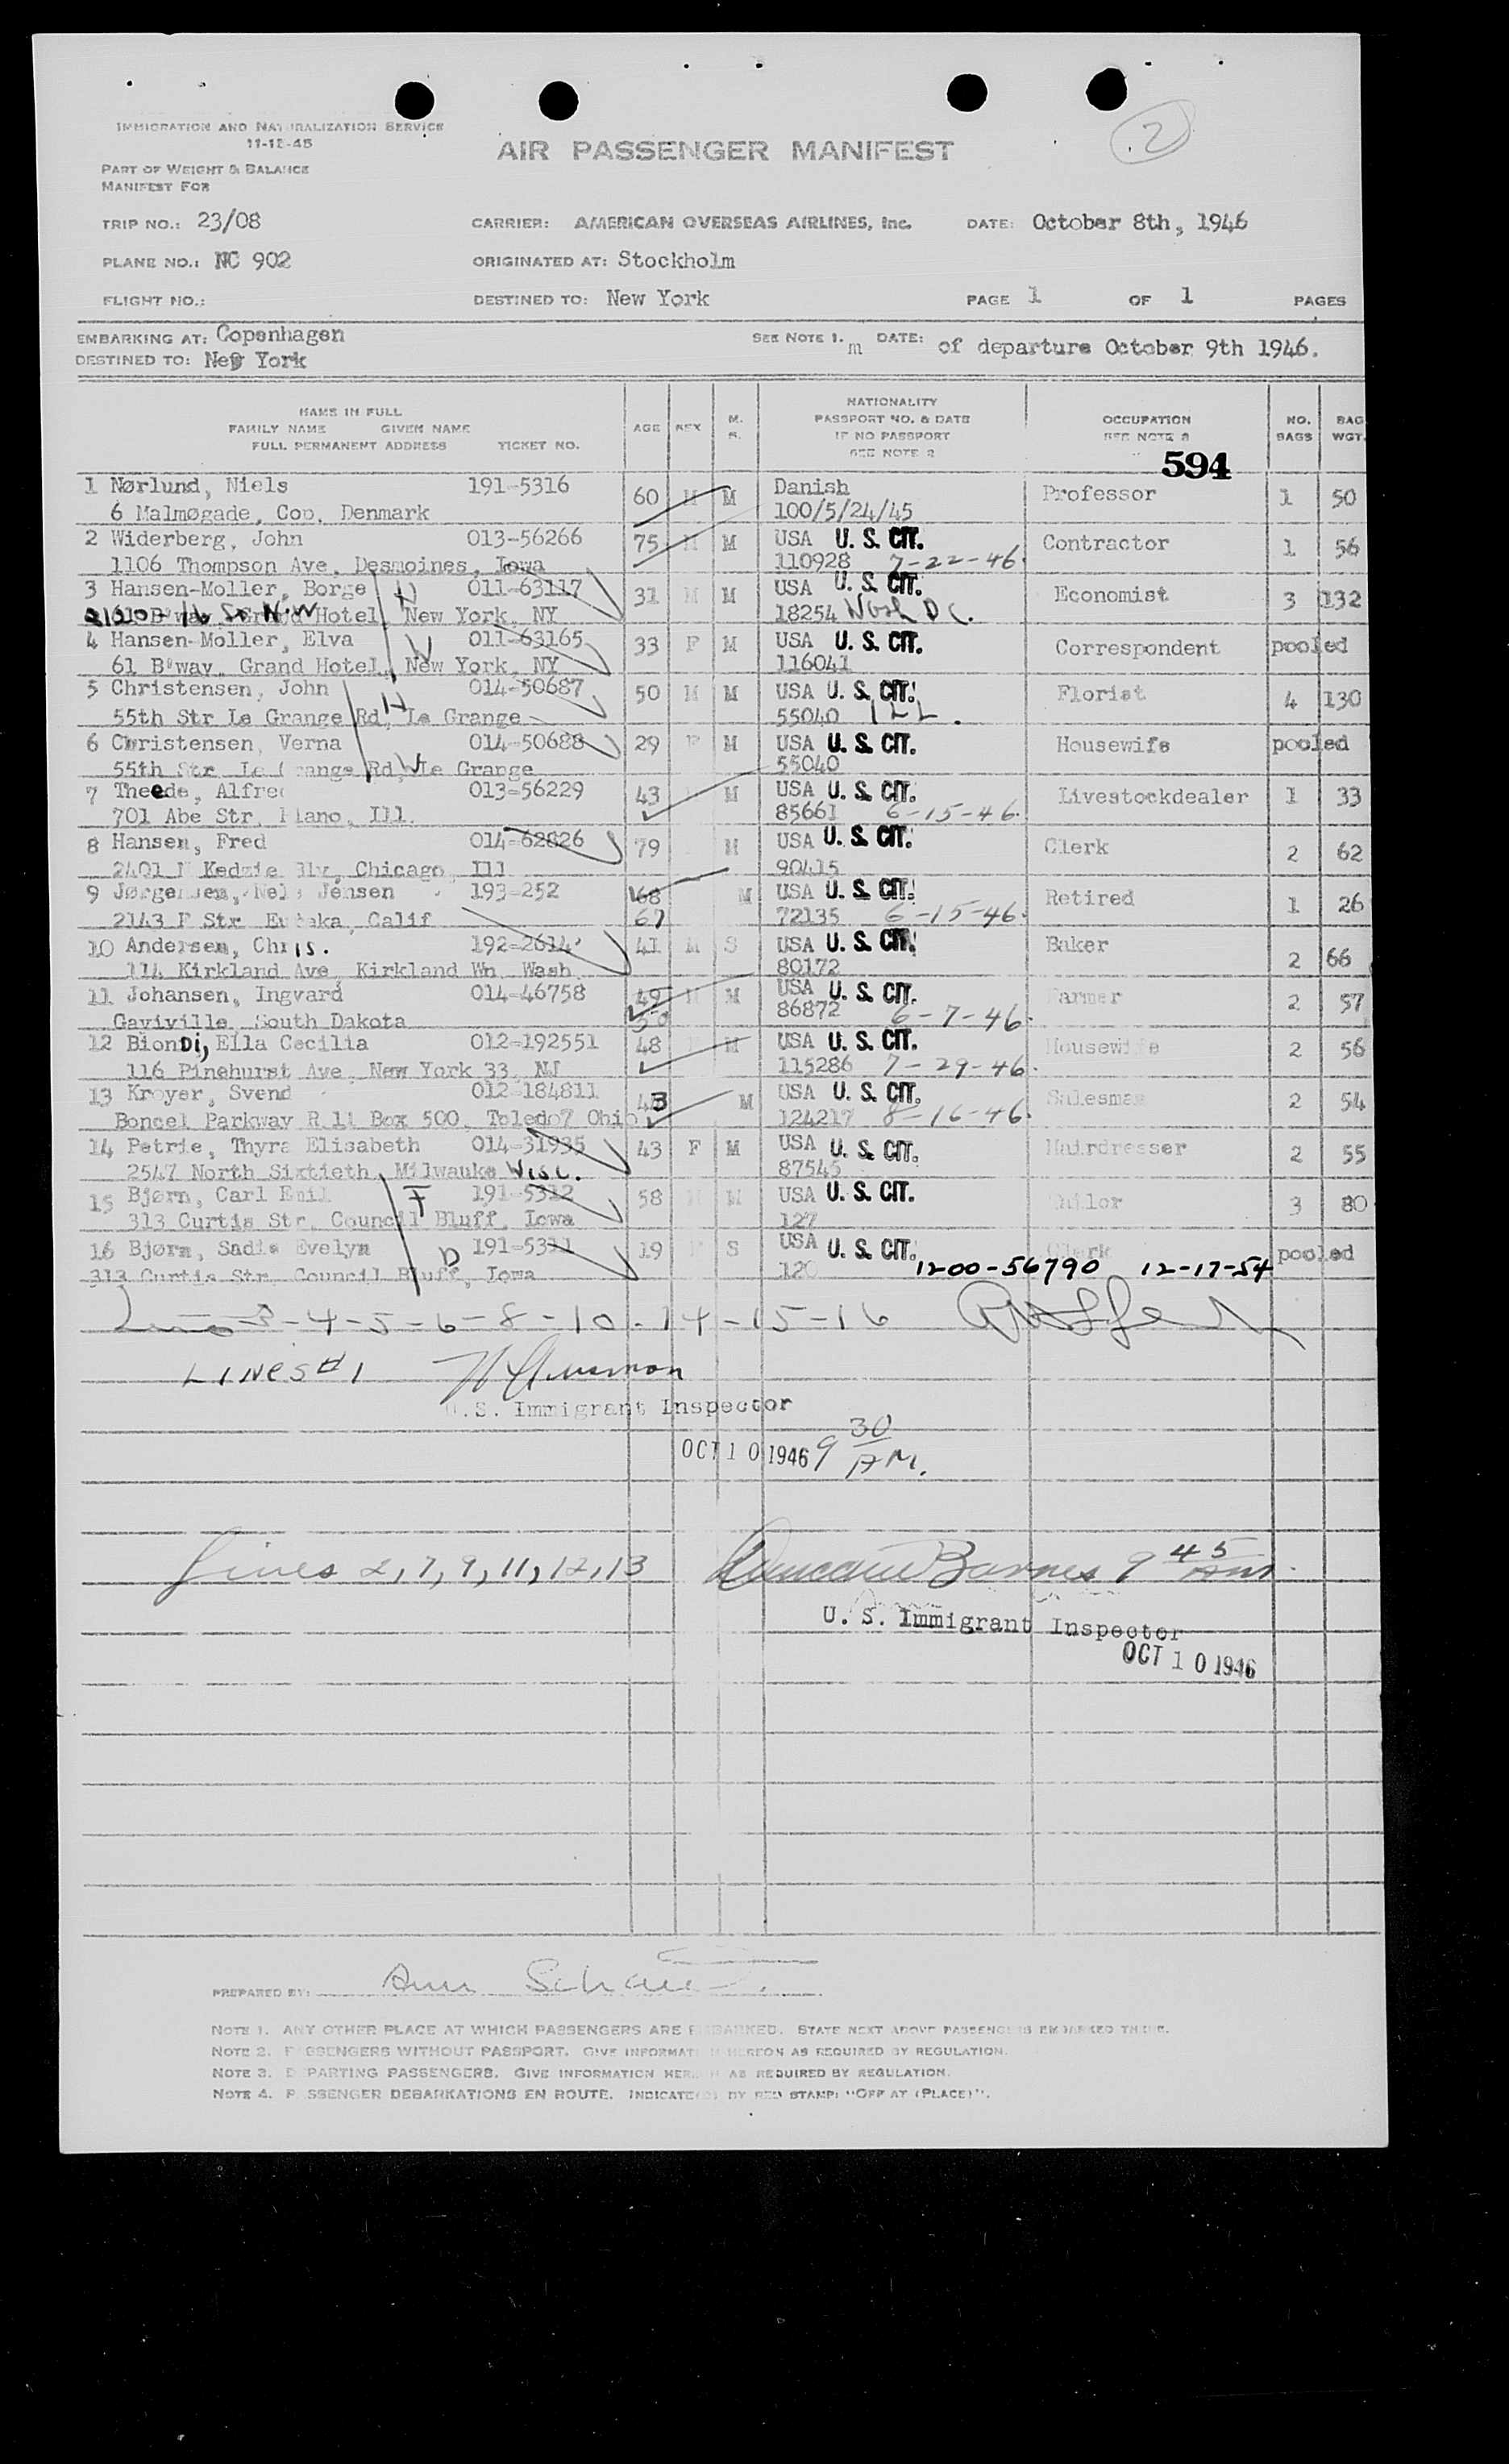 2
IMMIGRATION AND NATURALIZATION SERVICE
11-15-45
AIR PASSENGER MANIFEST
PART OF WEIGHT & BALANCE
MANIFEST FOR
TRIP NO.: 23/08 CARRIER: AMERICAN OVERSEAS AIRLINES, Inc. DATE: October 8th, 1946
PLANE NO.: NC 902 ORIGINATED AT: Stockholm
FLIGHT NO.: DESTINED TO: New York PAGE 1 OF 1 PAGES
EMBARKING AT: Copenhagen SEE NOTE 1. m DATE: of departure October 9th 1946.
DESTINED TO: New York
NAME IN FULL
FAMILY NAME GIVEN NAME
FULL PERMANENT ADDRESS TICKET NO. AGE SEX M. S. NATIONALITY PASSPORT NO. & DATE IF NO PASSPORT SEE NOTE 2 OCCUPATION SEE NOTE 2 NO. BAGS BAG WGT.
594
1 Nørlund, Niels 191-5316 60 M M Danish Professor 1 50
6 Malmøgade, Cop. Denmark 100/5/24/45
2 Widerberg, John 013-56266 75 M M USA U. S. CIT. Contractor 1 56
1106 Thompson Ave, Desmoines, Iowa 110928 7-22-46.
3 Hansen-Moller, Borge H 011-63117 31 M M USA U. S. CIT. Economist 3 132
16 St. N.W Hotel, New York, NY 18254 Wash DC.
4 Hansen-Moller, Elva W 011-63165 33 F M USA U. S. CIT. Correspondent pooled
61 B'way, Grand Hotel, New York, NY 116041
5 Christensen, John H 014-50687 50 M M USA U. S. CIT. Florist 4 130
55th Str Le Grange Rd, Le Grange 55040 ILL.
6 Christensen, Verna 014-50688 29 F M USA U. S. CIT. Housewife pooled
55th Str Le Grange Rd, W Le Grange 55040
7 Theede, Alfred 013-56229 43 M USA U. S. CIT. Livestockdealer 1 33
701 Abe Str, Plano, Ill. 85661 6-15-46.
8 Hansen, Fred 014-62826 79 M USA U. S. CIT. Clerk 2 62
2401 N Kedzie Blv, Chicago, Ill 90415
9 Jørgensen, Nels Jensen 193-252 68 M USA U. S. CIT. Retired 1 26
2143 F Str Eureka, Calif 67 72135 6-15-46.
10 Andersen, Chris. 192-2614 41 M S USA U. S. CIT. Baker 2 66
114 Kirkland Ave, Kirkland Wn. Wash. 80172
11 Johansen, Ingvard 014-46758 49 M M USA U. S. CIT. Farmer 2 57
Gayiville, South Dakota 50 86872 6-7-46.
12 BionDi, Ella Cecilia 012-192551 48 M USA U. S. CIT. Housewife 2 56
116 Pinehurst Ave, New York 33, NJ 115286 7-29-46.
13 Kroyer, Svend 012-184811 43 M USA U. S. CIT. Salesman 2 54
Boncel Parkway R 11 Box 500, Toledo7 Ohio 124217 8-16-46.
14 Petrie, Thyra Elisabeth 014-31935 43 F M USA U. S. CIT. Hairdresser 2 55
2547 North Sixtieth, Milwauke Wisc. 87545
15 Bjørn, Carl Emil F 191-5312 58 M M USA U. S. CIT. Tailor 3 80
313 Curtis Str. Council Bluff, Iowa 127
16 Bjørn, Sadie Evelyn D 191-5311 19 F S USA U. S. CIT. Clerk pooled
313 Curtis Str. Council Bluff, Iowa 120 1200-56790 12-17-54
3-4-5-6-8-10-14-15-16
LINES #1
U.S. Immigrant Inspector
OCT 10 1946 9 30 AM.
Lines 2, 7, 9, 11, 12, 13 Duncan Barnes 9 45 AM.
U. S. Immigrant Inspector
OCT 10 1946
PREPARED BY: Ann
NOTE 1. ANY OTHER PLACE AT WHICH PASSENGERS ARE EMBARKED. STATE NEXT ABOVE PASSENGERS EMBARKED THERE.
NOTE 2. PASSENGERS WITHOUT PASSPORT. GIVE INFORMATION HEREON AS REQUIRED BY REGULATION.
NOTE 3. DEPARTING PASSENGERS. GIVE INFORMATION HEREON AS REQUIRED BY REGULATION.
NOTE 4. PASSENGER DEBARKATIONS EN ROUTE. INDICATE(D) BY RED STAMP: "OFF AT (PLACE)".